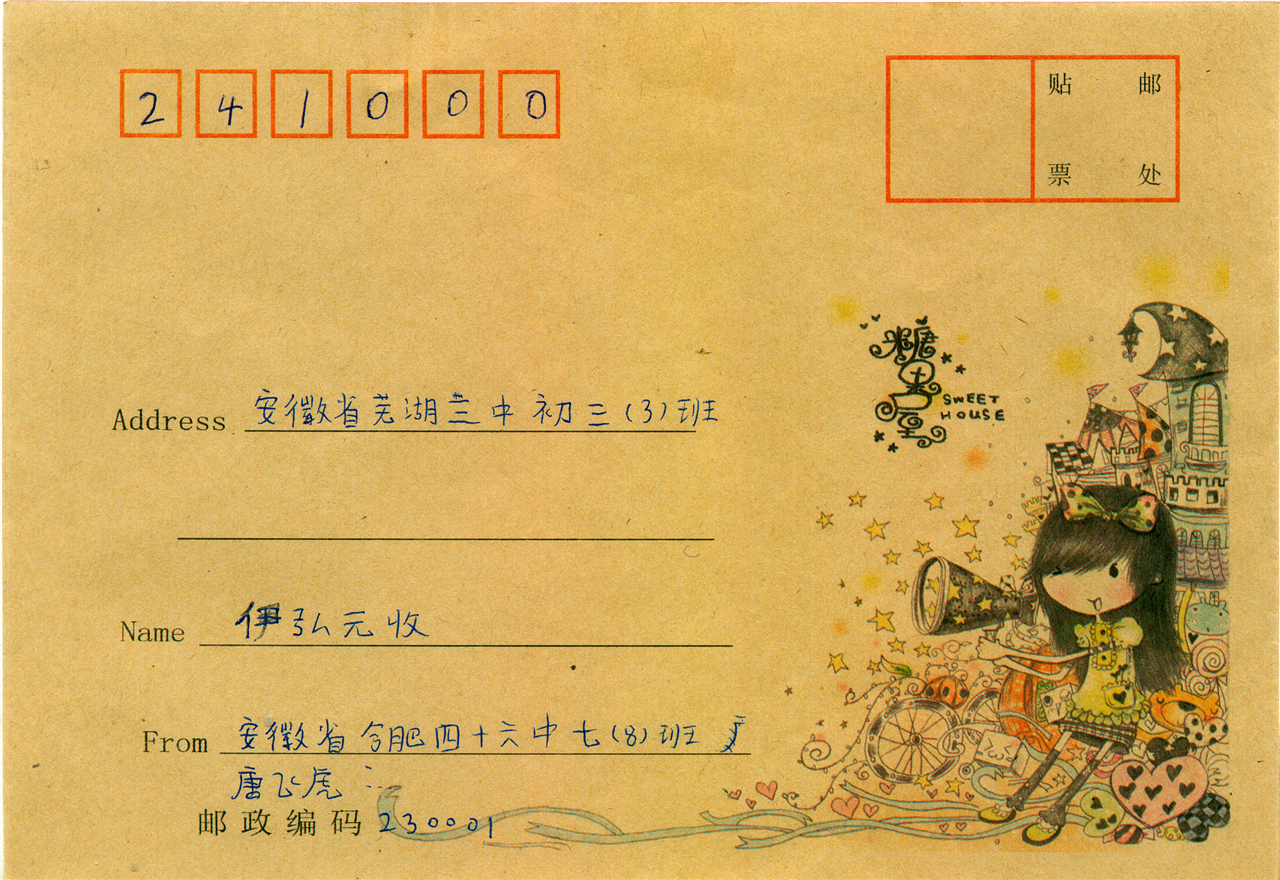 241000
贴 邮
票 处
糖果屋
SWEET
HOUSE
Address 安徽省芜湖三中初三(3)班
Name 伊弘元收
From 安徽省合肥四十六中七(8)班
唐飞虎
邮政编码 230001